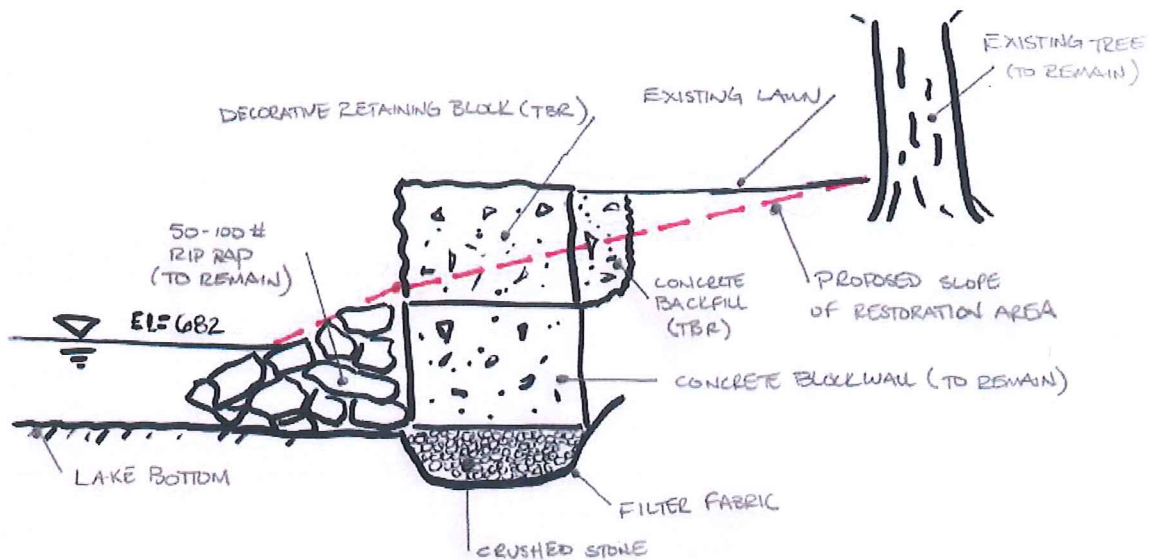 EXISTING TREE
(TO REMAIN)
EXISTING LAWN
DECORATIVE RETAINING BLOCK (TBR)
50-100 #
RIP RAP
(TO REMAIN)
EL=682
CONCRETE
BACKFILL
(TBR)
PROPOSED SLOPE
OF RESTORATION AREA
CONCRETE BLOCKWALL (TO REMAIN)
LAKE BOTTOM
FILTER FABRIC
CRUSHED STONE